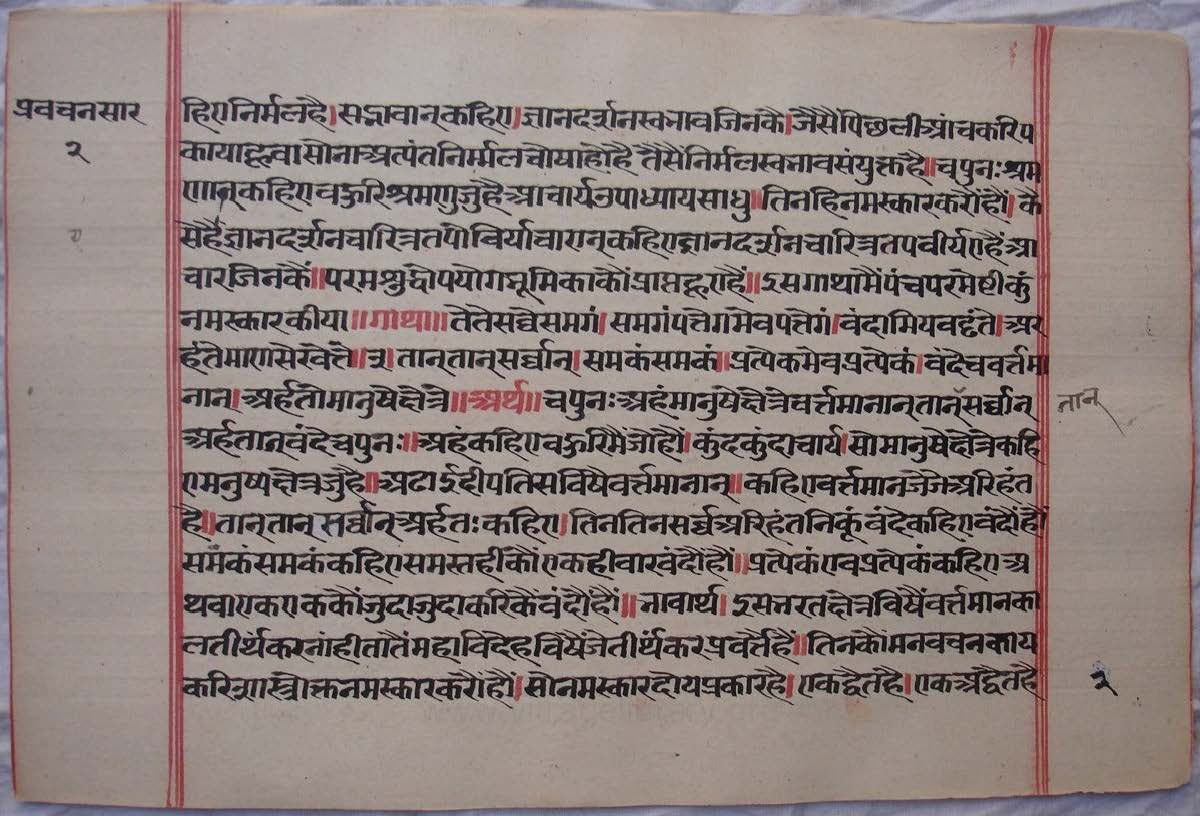 प्रवचनसार
२
हिएनिर्मलहै। सद्भावान्कहिए। ज्ञानदर्शनस्वभावजिनकै। जैसैंपिछलीआंचकरिप
कायाहूवासोनाअत्यंतनिर्म्मलचोषाहोहै तैसैंनिर्मलस्वभावसंयुक्तहै॥ चपुनःश्रम
णान्कहिएबहुरिश्रमणजुहैआचार्यउपाध्यायसाधु॥ तिनहिनमस्कारकरौंहौं। कै
सेहैंज्ञानदर्शनचारित्रतपोवीर्याचारान्कहिएज्ञानदर्शनचारित्रतपवीर्यएहैंआ
चारजिनकैं॥ परमशुद्धोपयोगभूमिकाकौंप्राप्तहूएहैं॥ ऽसगाथामैंपंचपरमेष्टीकुं
नमस्कारकीया॥ गाथा॥ तेतेसव्वेसमगं। समगंपत्तेगमेवपत्तेगं। वंदामियवट्टंते। अर
हंतेमाणुसेखेत्ते॥ ३। तान्तान्सर्व्वान्। समकंसमकं॥ प्रत्येकमेवप्रत्येकं। वंदेचवर्त्तमा
नान्। अर्हतोमानुषेक्षेत्रे॥ अर्थ॥ चपुनःअहंमानुषेक्षेत्रेवर्त्तमानान्तान्सर्व्वान्
तान्
अर्हतान्वंदेचपुनः॥ अहंकहिएबहुरिमैंजोहौं। कुंदकुंदाचार्य। सोमानुषेक्षेत्रेकहि
एमनुष्यक्षेत्रजुहै॥ अढाईद्वीपतिसविषैवर्त्तमानान्॥ कहिएवर्त्तमानजेजेअरिहंत
है॥ तान्तान्सर्व्वान्अर्हतःकहिए। तिनतिनसर्व्वअरिहंतनिकूंवंदेकहिएवंदौंहौं
समकंसमकंकहिएसमस्तहीकौंएकहीवारवंदौंहौं॥ प्रत्येकंएवप्रत्येकंकहिएअ
थवाएकएककौंजुदाजुदाकरिकैंवंदौंहौं॥ भावार्थ। ऽसभरतक्षेत्रविषैंवर्त्तमानका
लतीर्थकरनांहीतातैंमहाविदेहविषैंजेतीर्थकरप्रवर्त्तेहैं॥ तिनकौंमनवचनकाय
करिशास्त्रोक्तनमस्कारकरौंहौं। सोनमस्कारदोयप्रकारहै। एकद्वैतहै। एकअद्वैतहै
२